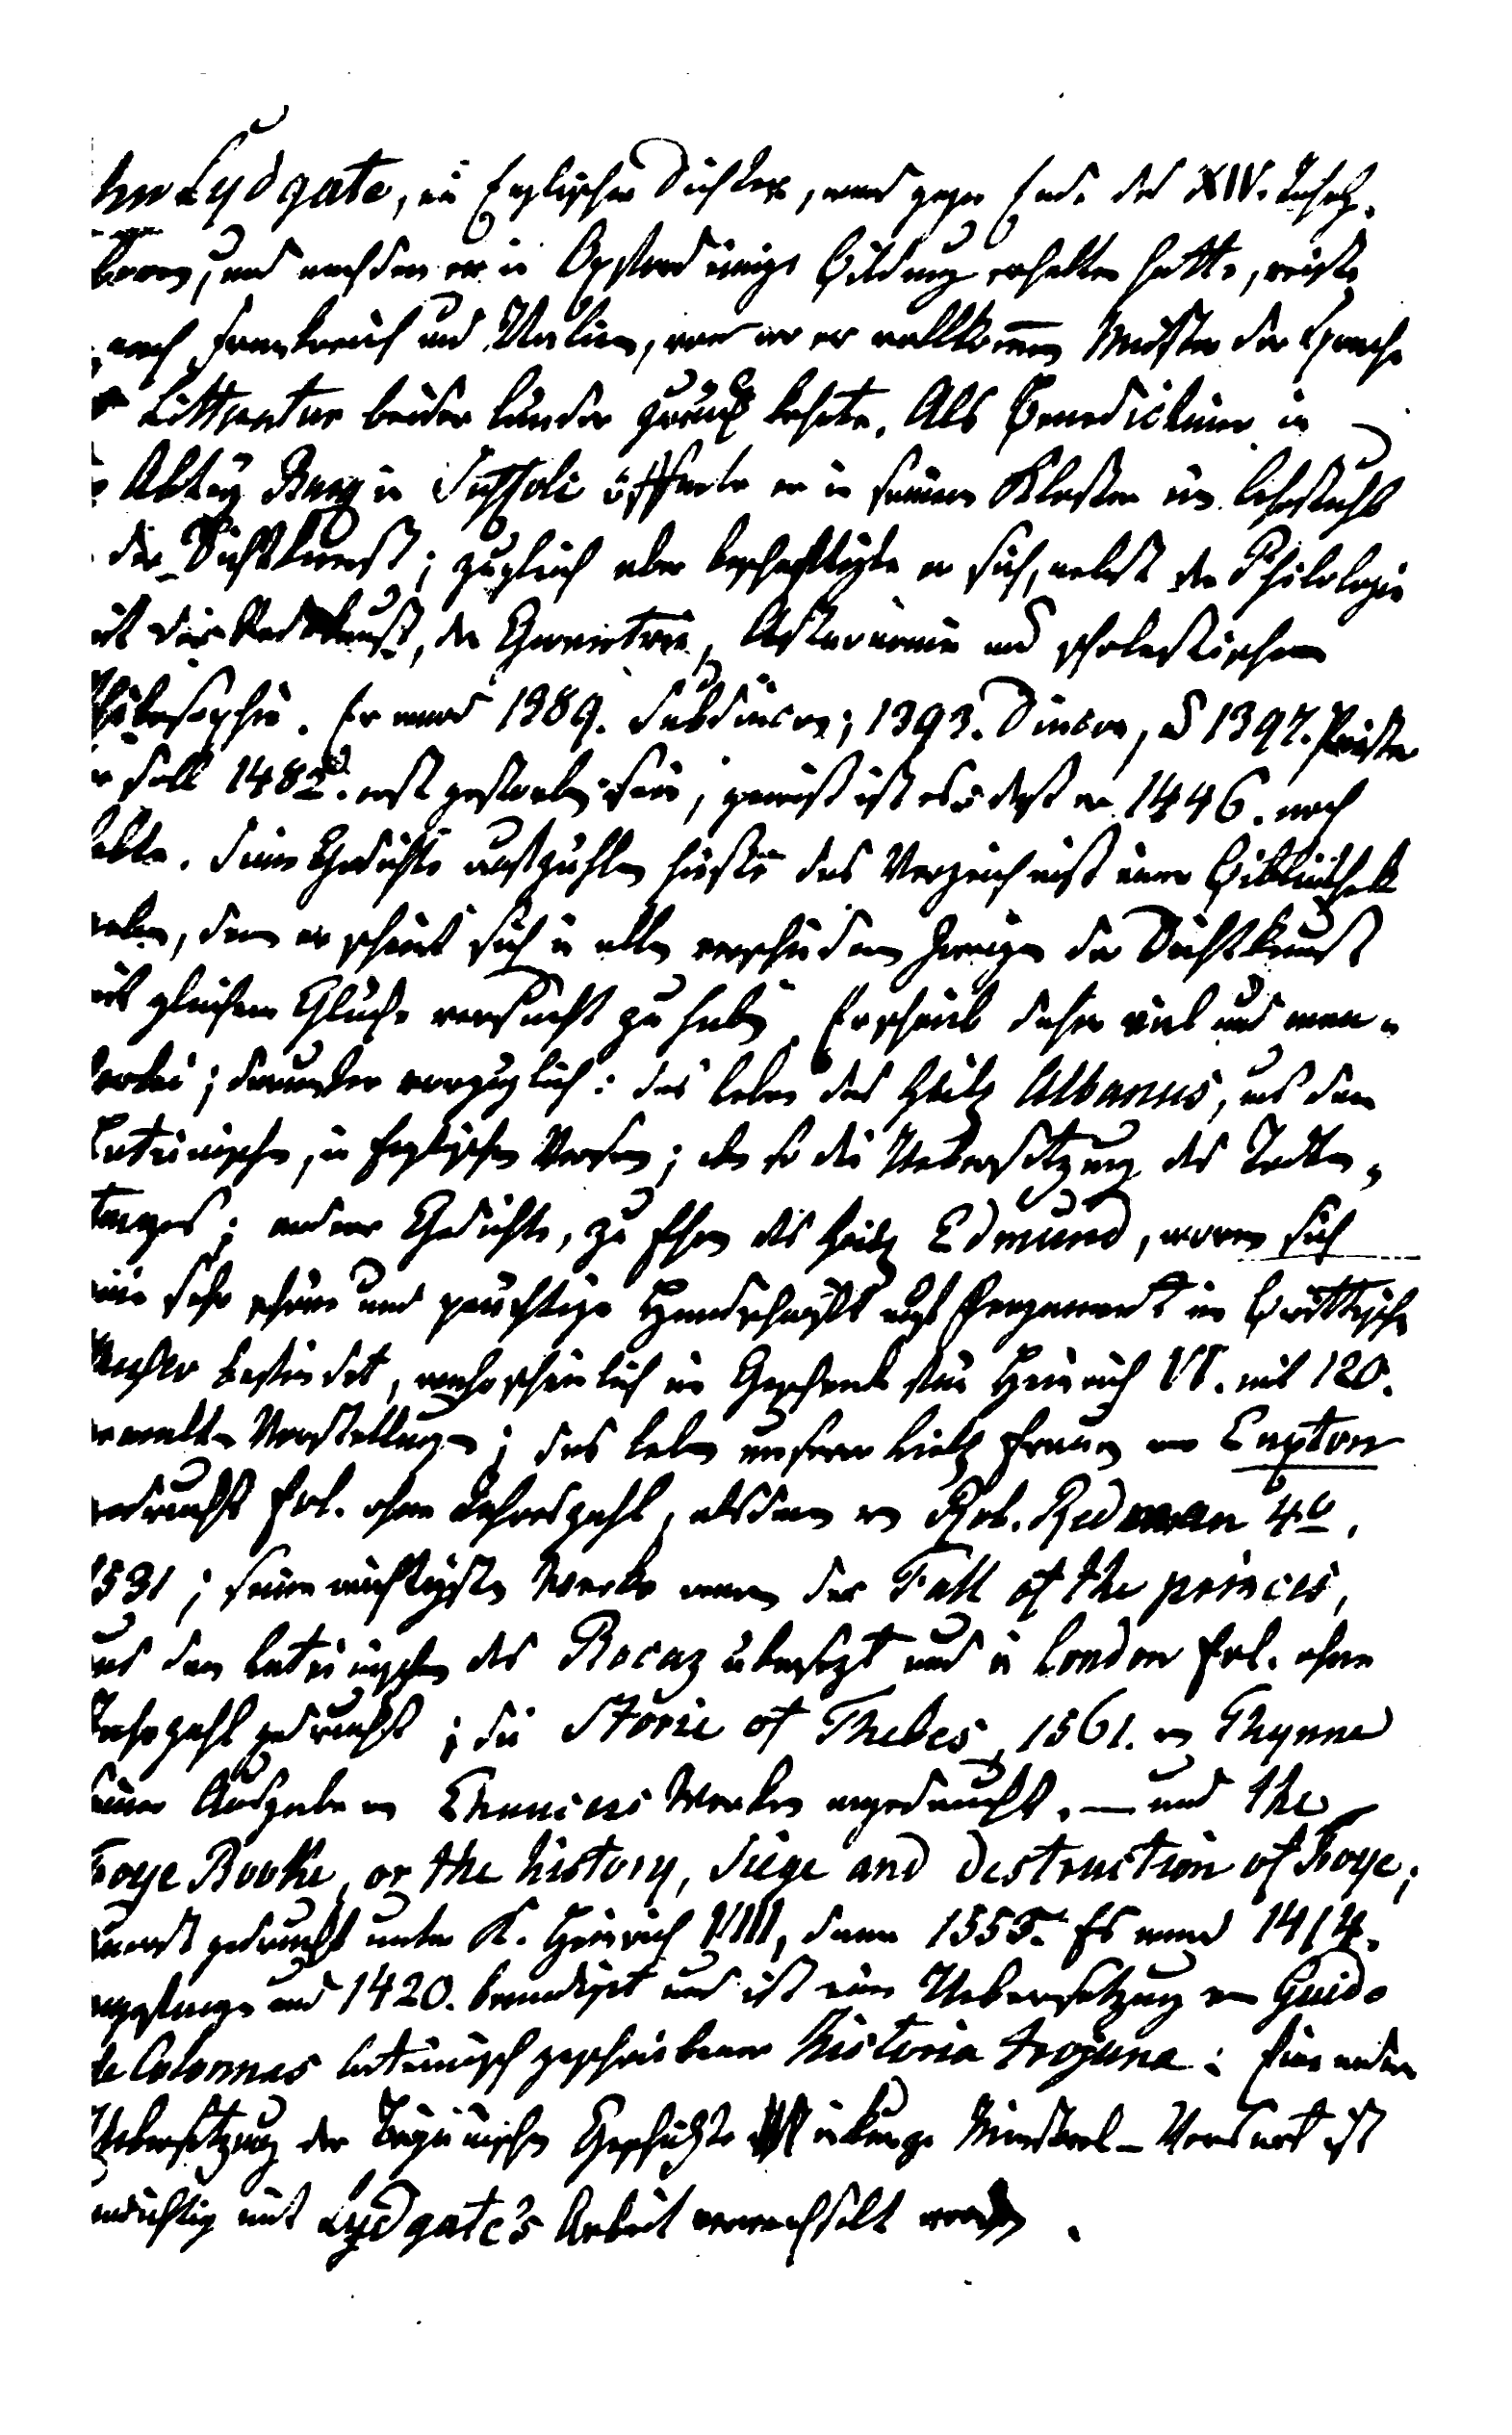 hn Lydgate, ein Englischer Dichter, ward gegen Ende des XIV. Jahrh.
boren, und nachdem er in Oxford einige Bildung erhalten hatte, reiste
nach Frankreich und Italien, von wo er vollkom̅en Meister der Sprache
Litteratur beider Länder zurück kehrte. Als Benedictiner in
Abtey Bury in Suffolc öffnete er in seinem Kloster ein Lehrstuhl
der Dichtkunst; zugleich aber beschäftigte er sich, nebst der Philologie
it der Redekunst, der Geometrie, Astronomie und scholastischen
hilosophie. Er ward 1389. Subdiacon; 1393. Diacon, u 1397. Priester
r soll 1482. erst gestorben sein, gewiß ist es daß er 1446. noch
ebte. Seine Gedichte aufzuhlen hieße das Verzeichniß einer Bibliothek
eben, denn er scheint sich in allen verschiedenen Zweigen der Dichtkunst
it gleichem Glücke versucht zu haben. Er schrieb daher viel und man-
erlei; darunter vorzüglich: das Leben des Heilg Albanus, aus dem
Lateinischen, in Englischen Versen; eben so die Uebersetzung des Todten-
tanzes; andere Gedichte, zu Ehren des Heilg Edmund, wovon sich
eine sehr schöne und prächtige Handschrift auf Pergament im Brittische
befindet, wahrscheinlich ein Geschenk für Heinrich VI. mit 120.
emalten Vorstellungen; das Leben unserer Liebg Frauen von Caxton
edruckt Fol. ohne Jahreszahl, alsdann von Rob. Redman 4to.
1531; seine wichtigste Werke waren der Fall of the princes,
us dem Lateinischen des Bocaz übersezt und in London Fol. ohne
Jahrzahl gedruckt; die Storie of Thebes, 1561. in Thynne
einer Ausgabe von Chaucers Werken angedruckt. — und the
Troye Booke, or the history, Siege and destruction of Troye;
zuerst gedruckt unter K. Heinrich VIII, dann 1555. Es ward 1414.
angefangen und 1420. beendigt und ist eine Uebersetzung von Guido
de Colonnas lateinisch geschriebener historia trojana: Eine andere
Uebersetzung der Trojanischen Geschichte in kurze Minstrel-Versart ist
unrichtig mit Lydgate's Arbeit verwechselt worden.